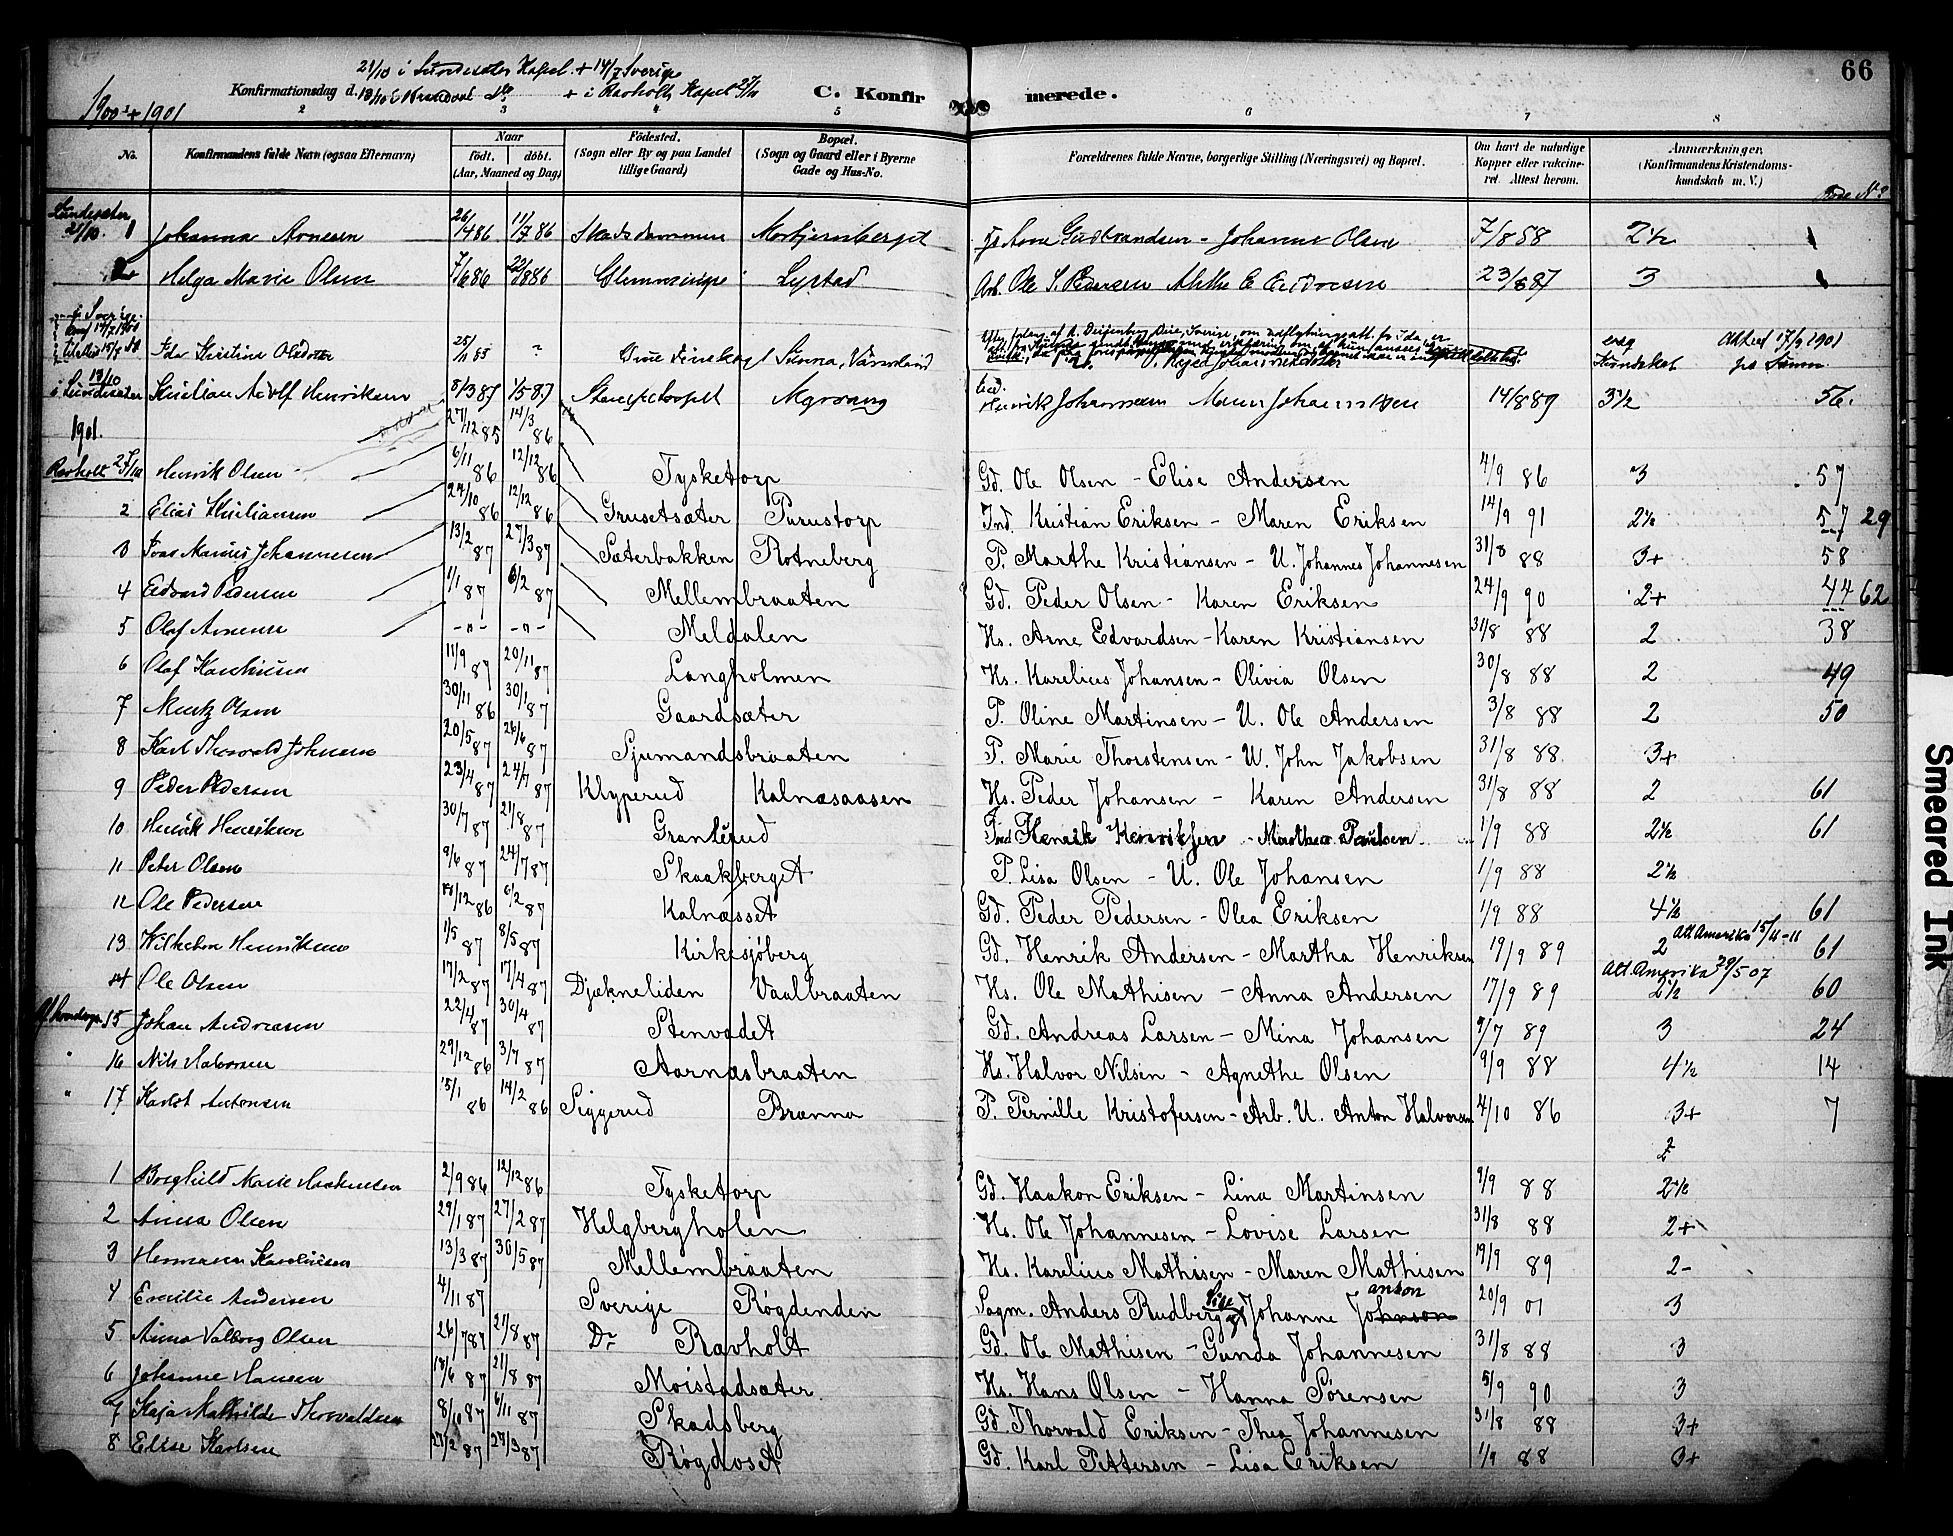 66
21/10 i Lundesæter Kapel. + 14/7 Sverige
Konfirmationsdag d. + i Ravholts Kapel 27/11 C. Konfirmerede.
1900 + 1901
2 3 4 5 6 7 8
No. Konfirmandens fulde Navn (ogsaa Efternavn) Naar født. døbt. (Aar, Maaned og Dag) Fødested. (Sogn eller By og paa Landet tillige Gaard) Bopæl. (Sogn og Gaard eller i Byerne Gade og Hus-No. Forældrenes fulde Navne, borgerlige Stilling (Næringsvei) og Bopæl. Om havt de naturlige Kopper eller vakcineret. Attest herom. Anmærkninger, (Konfirmandens Kristendomskundskab m. V.)
Lundesæter 21/10. 1 Johanna Arnesen 26/4 86 11/7 86 Arne Gudbrandsen - Johanne Olsen 7/8 88 2½
2 Helga Marie Olsen 7/6 86 22/8 86 Lystad Arb. Ole S. Pedersen 23/8 87 3
i Sverige 14/7 1901 Ida Kristine Olsdotter 25/1 85 ? Sunna, Värmland Kundskab Att. 17/9 1901
13/10 i Lundesæter Kristian Adolf Henriksen 8/3 87 1/5 87 Henrik Johannesen 14/8 89 3½ 56.
1901. 27/12 85 14/3 86
Ravholt 27/11 Henrik Olsen 6/11 86 12/12 86 Tysketorp Gd. Ole Olsen - Elise Andersen 4/9 86 3 57
2 Elias Kristiansen 24/10 86 12/12 86 Grusetsæter Purustorp Ind. Kristian Eriksen - Maren Eriksen 14/9 91 2½ 57 29
3 Marius Johannesen 13/2 87 27/3 87 Sæterbakken Rotneberg P. Marthe Kristiansen - U. Johannes Johannesen 31/8 88 3+ 58
4 Edvard Pedersen 1/1 87 6/2 87 Mellembraaten Gd. Peder Olsen - Karen Eriksen 24/9 90 2+ 44 62
5 Olaf Arnesen -"- -"- Meldalen Hs. Arne Edvardsen - Karen Kristiansen 31/8 88 2 38
6 Olaf Kareliusen 11/9 87 20/11 87 Langholmen Hs. Karelius Johansen - Olivia Olsen 30/8 88 2 49
7 Olsen 30/11 86 30/1 87 Gaardsæter P. Oline Martinsen - U. Ole Andersen 3/8 88 2 50
8 Karl Thorvald Johnsen 20/5 87 26/6 87 Sjumandsbraaten P. Marie Thorstensen - U. John Jakobsen 31/8 88 3+
9 Peder Pedersen 23/4 87 24/7 87 Klyperud Kalnæsaasen Hs. Peder Johansen - Karen Andersen 31/8 88 2 61
10 Henrik Henriksen 30/7 87 21/8 87 Grantérud Ind Henrik Henriksen - Marthea Paulsen 1/9 88 2½ 61
11 Peter Olsen 9/6 87 24/7 87 Skaakberget P. Lisa Olsen - U. Ole Johansen 1/9 88 2½
12 Ole Pedersen 18/12 86 6/2 87 Kalnæsset Gd. Peder Pedersen - Olea Eriksen 1/9 88 4½ 61
13 Wilhelm Henriksen 1/5 87 8/5 87 Kirkesjøberg Gd. Henrik Andersen - Martha Henriksen 19/9 89 2 Att Amerika 15/11-11 61
14 Ole Olsen 17/2 87 17/4 87 Djækneliden Vaalbraaten Hs. Ole Mathisen - Anna Andersen 17/9 89 Att. Amerika 29/5 07 2½ 60
15 Johan Andreasen 22/4 87 30/4 87 Stenvadet Gd. Andreas Larsen - Mina Johansen 9/7 89 3 24
" 16 Nils Halvorsen 29/12 86 3/7 87 Aarnæsbraaten Hs. Halvor Nilsen - Agnethe Olsen 9/9 88 4½ 14
" 17 Antonsen 15/1 86 14/2 86 Siggerud Brænna P. Pernille Kristofersen - Arb. U. Anton Halvorsen 4/10 86 3+ 7
2
1 Borghild Marie Haakonsen 2/9 86 12/12 86 Tysketorp Gd. Haakon Eriksen - Lina Martinsen 9/9 88 2½
2 Anna Olsen 29/1 87 27/2 87 Helgbergholen Hs. Ole Johannesen - Lovise Larsen 31/8 88 2+
3 Kareliusen 13/3 87 30/5 87 Mellembraaten Hs. Karelius Mathisen - Maren Mathisen 19/9 89 2-
4 Emilie Andersen 4/11 87 Sverige Røgdenden Sagm. Anders Rudberg Lise Johanne Johnson anson 20/9 01 3
5 Anna Valborg Olsen 26/7 87 21/8 87 Dr Ravholt Gd. Ole Mathisen - Gunda Johannesen 31/8 88 3
6 Johanne Hansen 18/6 87 21/8 87 Moistadsæter Hs. Hans Olsen - Hanna Sørensen 5/9 90 3
7 Kaja Mathilde Thorvaldsen 8/10 87 6/11 87 Skadsberg Gd. Thorvald Eriksen - Thea Johannesen 31/8 88 3+
8 Elise Karlsen 27/2 87 27/3 87 Røgdoset Gd. Karl Pettersen - Lisa Eriksen 1/9 88 3+
Smeared Ink